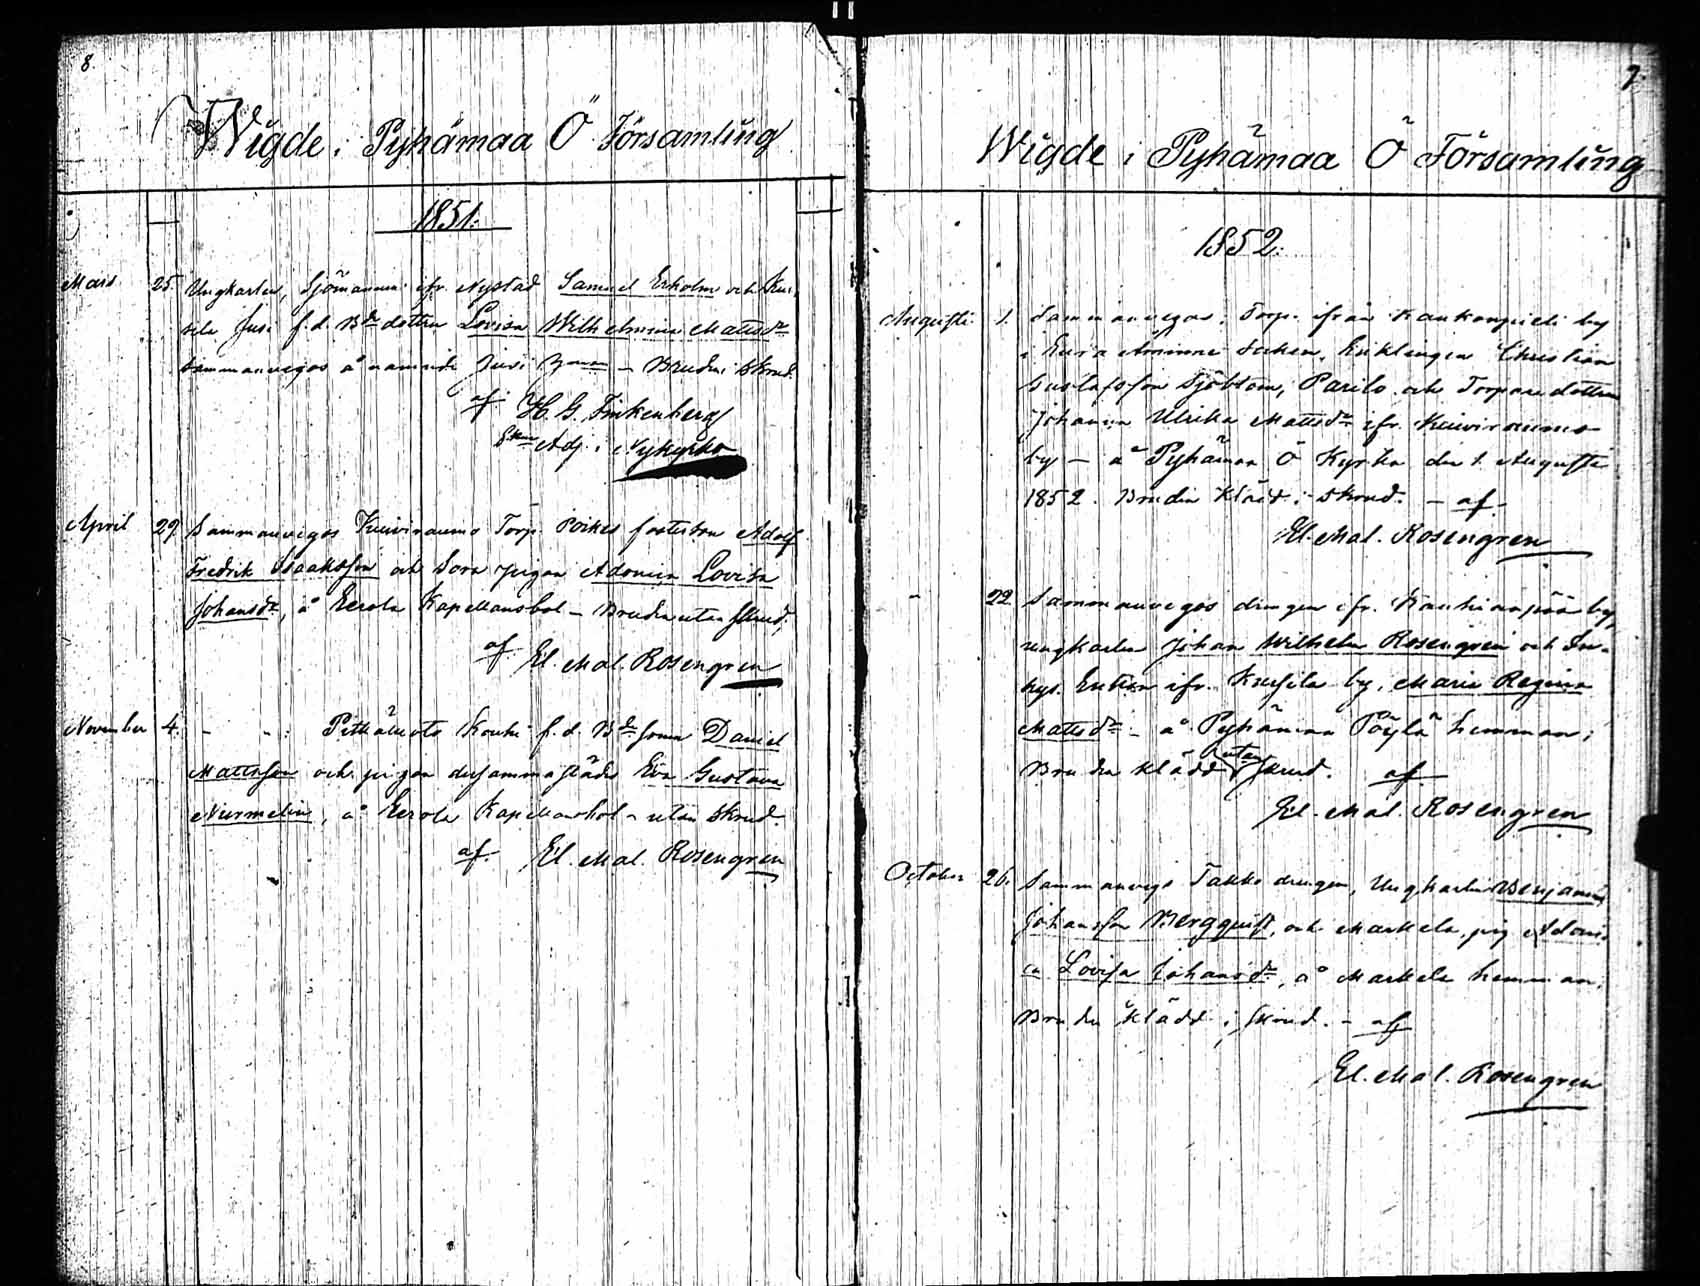 8.
Wigde i Pyhämaa Ö Församling
1851.
Mars 25. Ungkarlen, Sjömannen ifr. Nystad Samuel Ekholm och Kur-
sila Jusi f.d. Bde dottren Lovisa Wilhelmina Mattsdr
sammanvigas å nämnde Jusi hman – Bruden i skrud.
af H. G. Finkenberg
Adj. i Nykyrko
April 29. Sammanvigas Kuiviraumo Torp. Poikes fosterson Adolf
Fredrik Isaaksson och Sora pigan Adamina Lovisa
Johansdr, å Eerola Kapellansbol – Bruden utan skrud,
af El. Mal. Rosengren
November 4. – – : Pitkäluoto Kouki f.d. Bde sonen Daniel
Mattsson och pigan dersammastädes Eva Gustava
Nurmelin, å Eerola Kapellansbol – utan skrud.
af El. Mal. Rosengren
Wigde i Pyhämaa Ö Församling
1852.
Augusti 1. Sammanvigas: Torp. ifrån by
i Eura Socken, Enklingen Christian
Gustafsson Sjöblom, och Torparedottren
Johanna Ulrika Mattsdr ifr. Kuiviraumo
by – å Pyhämaa Ö Kyrka den 1. Augusti
1852. Bruden klädd i skrud. – af
El. Mal. Rosengren
– 22 Sammanvigas drengen ifr. by,
ungkarlen Johan Wilhelm Rosengren och In-
hys. Enkan ifr. Kursila by, Maria Regina
Mattsdr – å Pyhämaa Pöylä hemman;
Bruden klädd utan skrud. af
El. Mal. Rosengren
October 26. Sammanvigs Takko drengen, Ungkarlen Benjamin
Johansson Bergquist, och Markela pig. Adami-
na Lovisa Johansdr, å Markela hemman.
Bruden klädd i skrud. – af
El. Mal. Rosengren